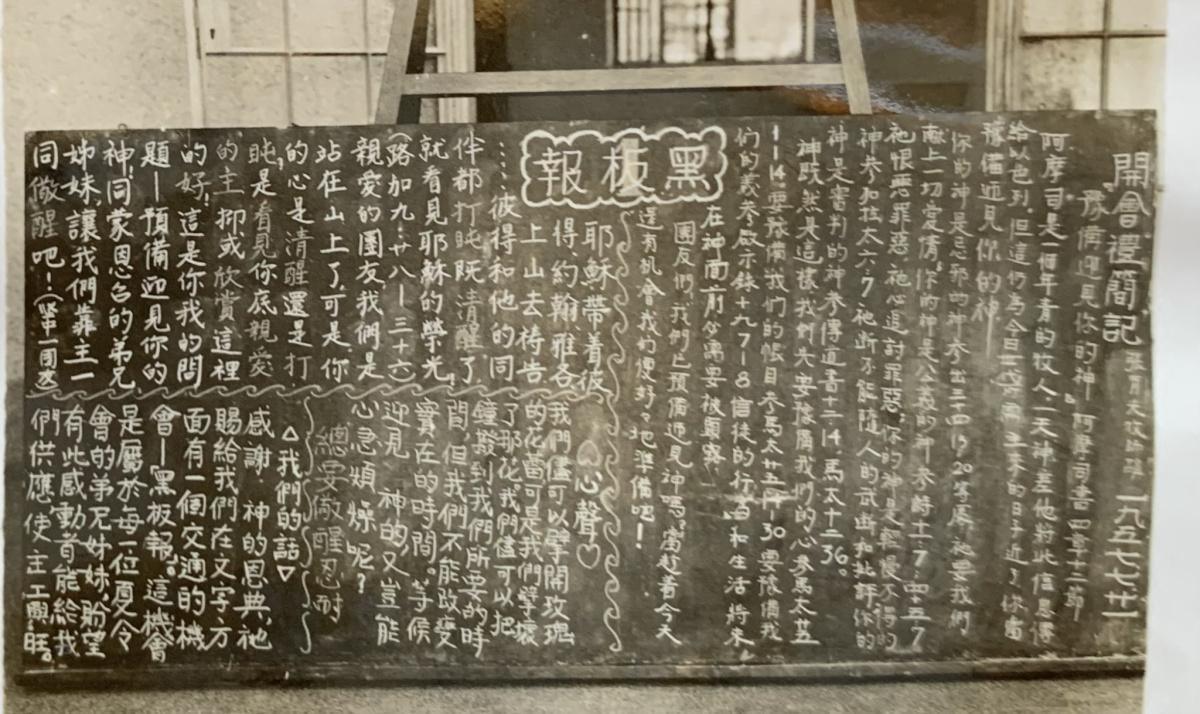 開會禮簡記 張 天 牧師講 一九五七七廿一
豫備迎見你的神 阿摩司書四章十二節
阿摩司是一個年青的牧人,一天神差他將此信息傳
給以色列,但這仍為今日 的日子近了,你當
豫備迎見你的神
你的神是忌邪的神參出 20等 祂要我們
獻上一切愛情,你的神是公義的神參詩
祂恨惡罪惡,祂必追討罪惡,你的神是輕慢不得的
神參加拉太六、7.祂斷不能隨人的武斷和批評.你的
神是審判的神參傳道書十二14馬太十二36。
神既然是這樣我們先要豫備我們的心參馬太廿五
1—14.要豫備我們的帳目參馬太廿五 30要豫備我
們的義參啟示錄十九7—8信徒的行為和生活將來
在神面前必需要被顯露
團友們,我們已預備迎見神嗎?當趁著今天
還有机會我們便好好地準備吧!
黑板報
耶穌帶着彼
得,約翰,雅各
上山去禱告
……彼得和他的同
伴都打盹既清醒了
就看見耶穌的榮光
(路加九·廿八—三十六)
親愛的團友我們是
站在山上了,可是你
的心是清醒還是打
盹是看見你底親愛
的主,抑或欣賞這裡
的好,這是你我的問
題—預備迎見你的
神,同蒙恩召的弟兄
姊妹讓我們靠主一
同儆醒吧!
♡心聲♡
我們儘可以擘開玫瑰
的花蕾可是我們擘壞
了那花我們儘可以把
鐘撥到我們所要的時
間,但我們不能改變
實在的時間。等候
迎見 神的,又豈能
心急煩燥呢?
總要儆醒忍耐
△我們的話▽
感謝 神的恩典,祂
賜給我們在文字方
面有一個交通的機
會—黑板報。這機會
是屬於每一位夏令
會的弟兄姊妹,盼望
有此感動者能給我
們供應使主工興旺。